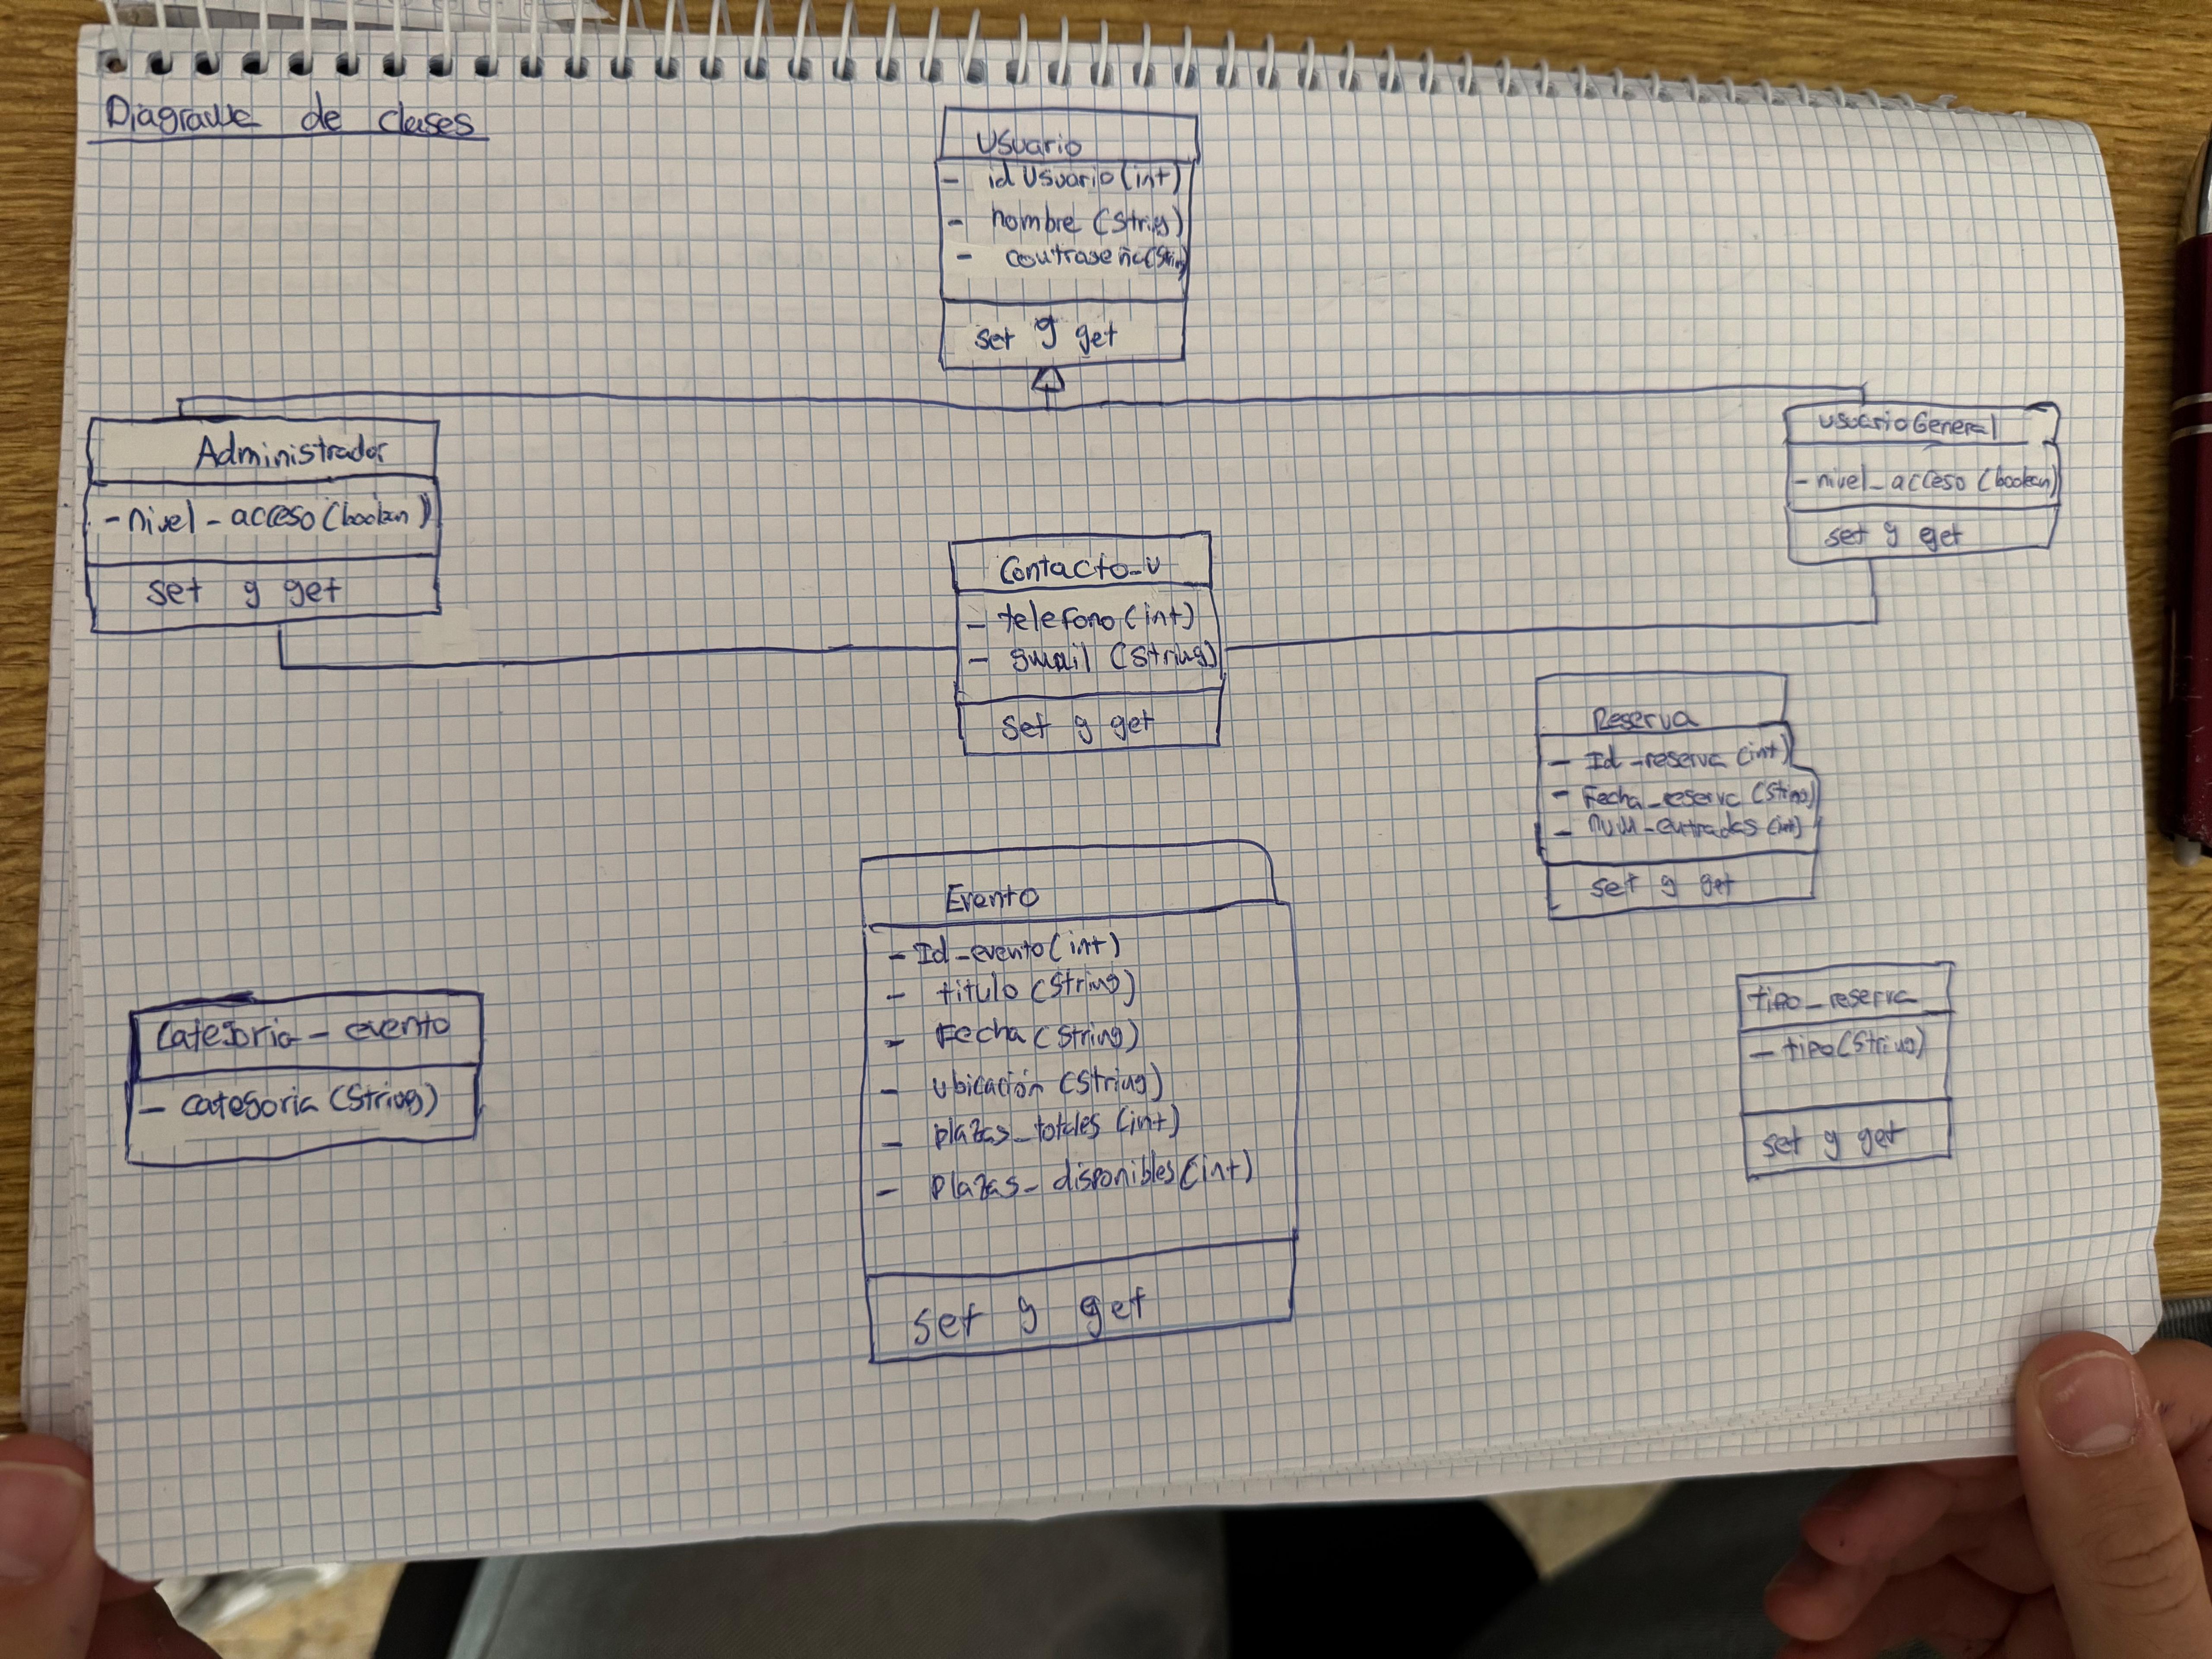 Diagrama de clases
Usuario
- idUsuario (int)
- nombre (String)
- contraseña (String)
set y get
Administrador
- nivel_acceso (boolean)
set y get
usuarioGeneral
- nivel_acceso (boolean)
set y get
Contacto_U
- telefono (int)
- gmail (String)
set y get
Reserva
- Id_reserva (int)
- Fecha_reserva (String)
- num_entradas (int)
set y get
Evento
- Id_evento (int)
- titulo (String)
- Fecha (String)
- ubicación (String)
- plazas_totales (int)
- Plazas_disponibles (int)
set y get
Categoria_evento
- categoria (String)
tipo_reserva
- tipo (String)
set y get